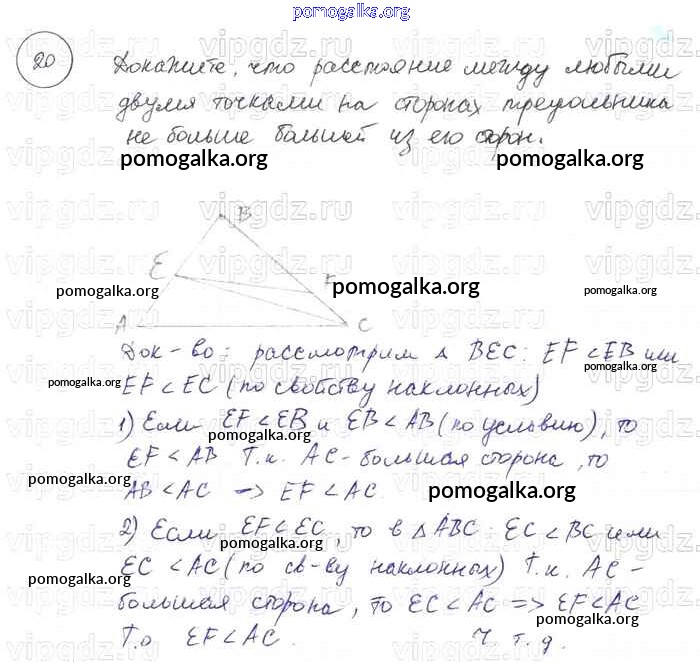 pomogalka.org
20
Докажите, что расстояние между любыми
двумя точками на сторонах треугольника
не больше большей из его сторон.
pomogalka.org pomogalka.org
B
E
F
pomogalka.org pomogalka.org pomogalka.org
A C
Док-во: рассмотрим Δ BEC: EF < EB или
pomogalka.org
EF < EC (по свойству наклонных)
pomogalka.org
1) Если EF < EB и EB < AB (по условию), то
pomogalka.org
EF < AB Т.к. AC - большая сторона, то
pomogalka.org
AB < AC => EF < AC.
pomogalka.org
2) Если EF < EC, то в Δ ABC: EC < BC или
pomogalka.org
EC < AC (по св-ву наклонных) Т.к. AC -
pomogalka.org pomogalka.org
большая сторона, то EC < AC => EF < AC
pomogalka.org
Т.о EF < AC. ч.т.д.
pomogalka.org